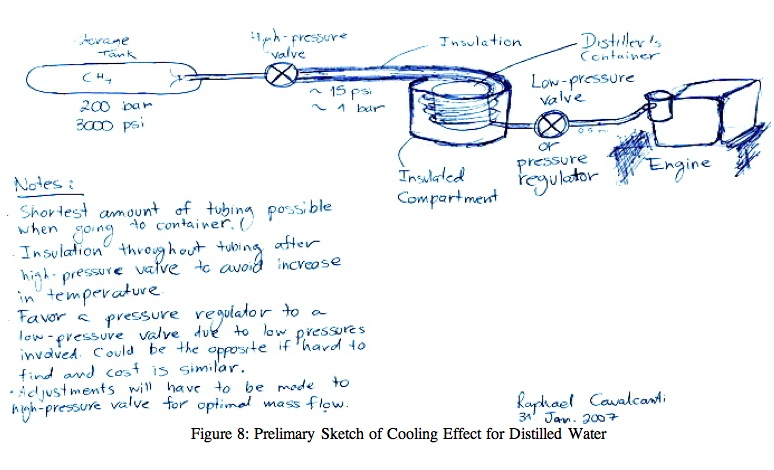 Storage
Tank
High-pressure
valve
Insulation
Distiller's
Container
CH4
200 bar
3000 psi
~ 15 psi
~ 1 bar
Low-pressure
valve
0.5 m
or
pressure
regulator
Engine
Insulated
Compartment
Notes:
. Shortest amount of tubing possible
when going to container.
. Insulation throughout tubing after
high-pressure valve to avoid increase
in temperature
. Favor a pressure regulator to a
low-pressure valve due to low pressures
involved. Could be the opposite if hard to
find and cost is similar.
. Adjustments will have to be made to
high-pressure valve for optimal mass flow.
Raphael Cavalcanti
31 Jan. 2007
Figure 8: Prelimary Sketch of Cooling Effect for Distilled Water